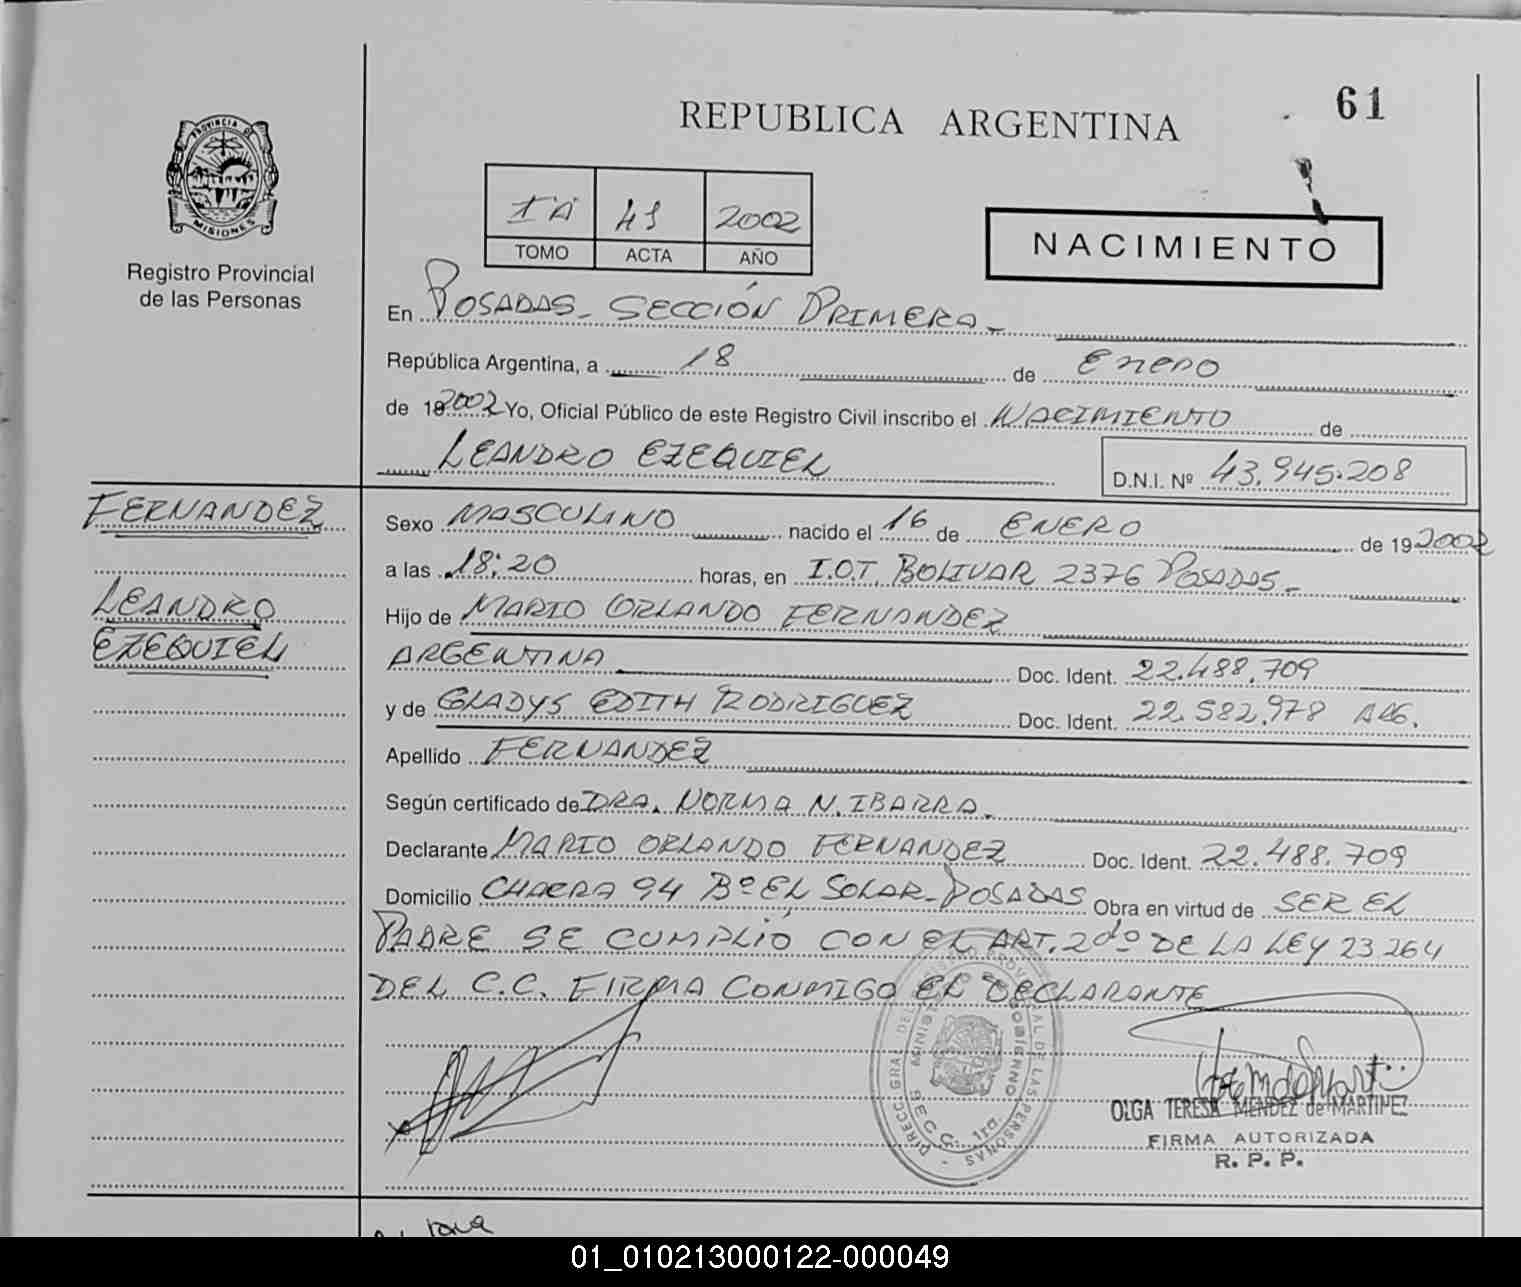 61
REPUBLICA ARGENTINA
PROVINCIA DE
MISIONES
Registro Provincial
de las Personas
IA 41 2002
TOMO ACTA AÑO
NACIMIENTO
En POSADAS - SECCIÓN PRIMERA -
República Argentina, a 18 de ENERO
de 192002 Yo, Oficial Público de este Registro Civil inscribo el NACIMIENTO de
LEANDRO EZEQUIEL D.N.I. Nº 43.945.208
FERNANDEZ
LEANDRO
EZEQUIEL
Sexo MASCULINO nacido el 16 de ENERO de 192002
a las 18:20 horas, en I.O.T. BOLIVAR 2376 POSADAS -
Hijo de MARIO ORLANDO FERNANDEZ
ARGENTINA Doc. Ident. 22.488.709
y de GLADYS EDITH RODRIGUEZ Doc. Ident. 22.582.978 ARG.
Apellido FERNANDEZ
Según certificado de DRA. NORMA N. IBARRA -
Declarante MARIO ORLANDO FERNANDEZ Doc. Ident. 22.488.709
Domicilio CHACRA 94 Bº EL SOLAR - POSADAS Obra en virtud de SER EL
PADRE SE CUMPLIÓ CON EL ART. 2do DE LA LEY 23264
DEL C.C. FIRMA CONMIGO EL DECLARANTE
DIRECC. GRAL. DEL REGISTRO PROVINCIAL DE LAS PERSONAS
GOBIERNO
SECC. 1ra.
OLGA TERESA MENDEZ de MARTINEZ
FIRMA AUTORIZADA
R. P. P.
01_010213000122-000049